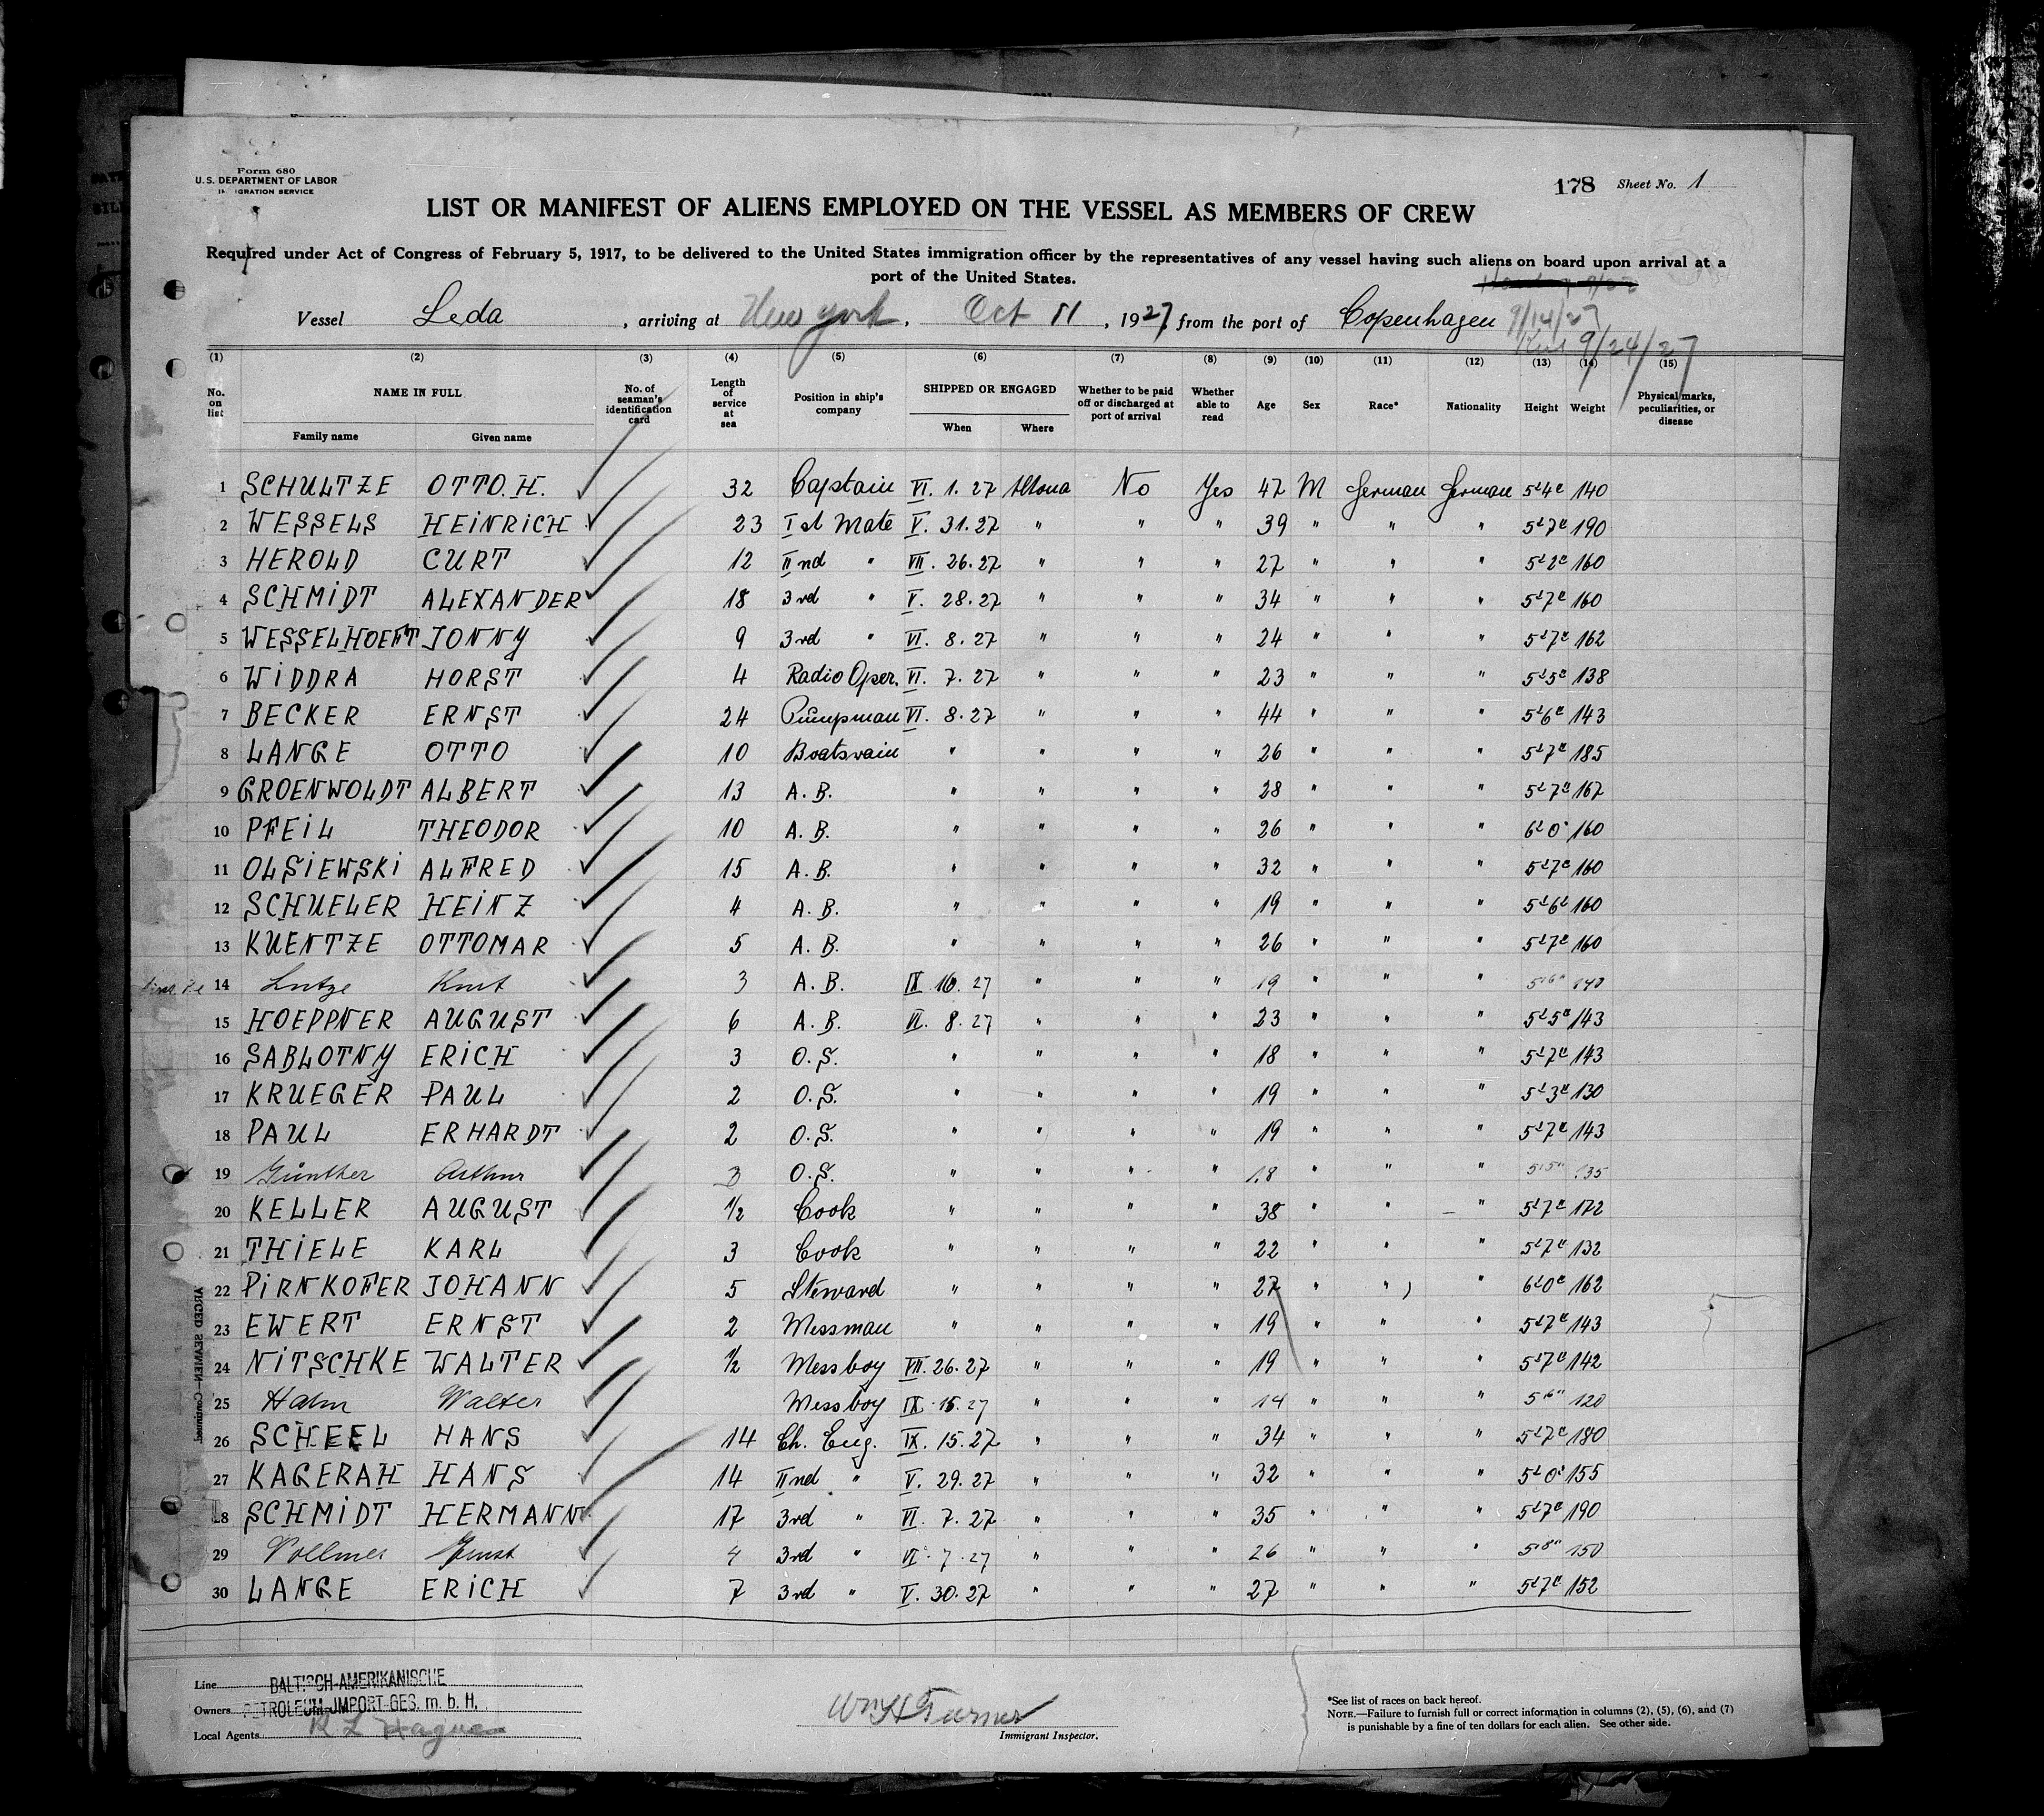 Form 680
U.S. DEPARTMENT OF LABOR
IMMIGRATION SERVICE
178 Sheet No. 1
LIST OR MANIFEST OF ALIENS EMPLOYED ON THE VESSEL AS MEMBERS OF CREW
Required under Act of Congress of February 5, 1917, to be delivered to the United States immigration officer by the representatives of any vessel having such aliens on board upon arrival at a
port of the United States.
Vessel Leda, arriving at New York, Oct 11, 1927, from the port of Copenhagen 9/14/27
9/24/27
(1) (2) (3) (4) (5) (6) (7) (8) (9) (10) (11) (12) (13) (14) (15)
No. on list NAME IN FULL Family name Given name No. of seaman's identification card Length of service at sea Position in ship's company SHIPPED OR ENGAGED When Where Whether to be paid off or discharged at port of arrival Whether able to read Age Sex Race* Nationality Height Weight Physical marks, peculiarities, or disease
1 SCHULTZE OTTO. H. 32 Captain VI. 1. 27 Altona No Yes 47 M German German 5'4" 140
2 WESSELS HEINRICH 23 I st Mate V. 31. 27 " " " 39 " " " 5'7" 190
3 HEROLD CURT 12 II nd " VII. 26. 27 " " " 27 " " " 5'2" 160
4 SCHMIDT ALEXANDER 18 3rd " V. 28. 27 " " " 34 " " " 5'7" 160
5 WESSELHOEFT JONNY 9 3rd " VI. 8. 27 " " " 24 " " " 5'7" 162
6 WIDDRA HORST 4 Radio Oper. VI. 7. 27 " " " 23 " " " 5'5" 138
7 BECKER ERNST 24 Pumpman VI. 8. 27 " " " 44 " " " 5'6" 143
8 LANGE OTTO 10 Boatswain " " " " 26 " " " 5'7" 185
9 GROENWOLDT ALBERT 13 A. B. " " " " 28 " " " 5'7" 167
10 PFEIL THEODOR 10 A. B. " " " " 26 " " " 6'0" 160
11 OLSIEWSKI ALFRED 15 A. B. " " " " 32 " " " 5'7" 160
12 SCHUELER HEINZ 4 A. B. " " " " 19 " " " 5'6" 160
13 KUENTZE OTTOMAR 5 A. B. " " " " 26 " " " 5'7" 160
14 Lutze Kurt 3 A. B. IX 16. 27 " " " 19 " " " 5'6" 140
15 HOEPPNER AUGUST 6 A. B. VI. 8. 27 " " " 23 " " " 5'5" 143
16 SABLOTNY ERICH 3 O. S. " " " " 18 " " " 5'7" 143
17 KRUEGER PAUL 2 O. S. " " " " 19 " " " 5'3" 130
18 PAUL ERHARDT 2 O. S. " " " " 19 " " " 5'7" 143
19 Günther Arthur 3 O. S. " " " " 18 " " " 5'5" 135
20 KELLER AUGUST 1/2 Cook " " " " 38 " " " 5'7" 172
21 THIELE KARL 3 Cook " " " " 22 " " " 5'7" 132
22 PIRNKOFER JOHANN 5 Steward " " " " 27 " " " 6'0" 162
23 EWERT ERNST 2 Messman " " " " 19 " " " 5'7" 143
24 NITSCHKE WALTER 1/2 Messboy VII. 26. 27 " " " 19 " " " 5'7" 142
25 Hahn Walter Messboy IX. 15. 27 " " " 14 " " " 5'6" 120
26 SCHEEL HANS 14 Ch. Eng. IX. 15. 27 " " " 34 " " " 5'7" 180
27 KAGERAH HANS 14 II nd " V. 29. 27 " " " 32 " " " 5'0" 155
28 SCHMIDT HERMANN 17 3rd " VI. 7. 27 " " " 35 " " " 5'7" 190
29 Vollmer Ernst 4 3rd " VI. 7. 27 " " " 26 " " " 5'8" 150
30 LANGE ERICH 7 3rd " V. 30. 27 " " " 27 " " " 5'7" 152
Line BALTISCH-AMERIKANISCHE
Owners PETROLEUM-IMPORT-GES. m. b. H.
Local Agents R L Hague
Wm H Turner
Immigrant Inspector.
*See list of races on back hereof.
NOTE.—Failure to furnish full or correct information in columns (2), (5), (6), and (7)
is punishable by a fine of ten dollars for each alien. See other side.